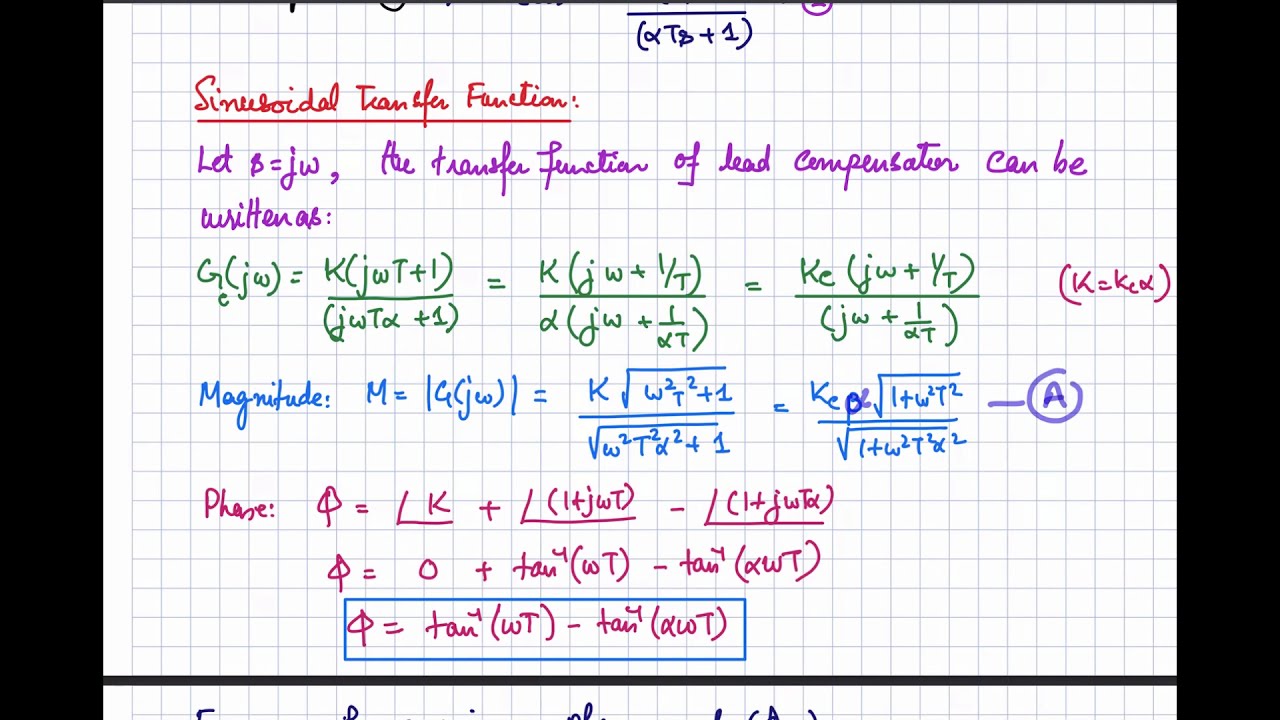 (αTs+1)
Sinusoidal Transfer Function:
Let s=jω, the transfer function of lead compensator can be
written as:
Gc(jω) = K(jωT+1)/(jωTα+1) = K(jω+1/T)/α(jω+1/αT) = Kc(jω+1/T)/(jω+1/αT) (K=Kcα)
Magnitude: M = |G(jω)| = K√(ω²T²+1)/√(ω²T²α²+1) = Kc α√(1+ω²T²)/√(1+ω²T²α²) — A
Phase: ϕ = ∠K + ∠(1+jωT) - ∠(1+jωTα)
ϕ = 0 + tan⁻¹(ωT) - tan⁻¹(αωT)
ϕ = tan⁻¹(ωT) - tan⁻¹(αωT)